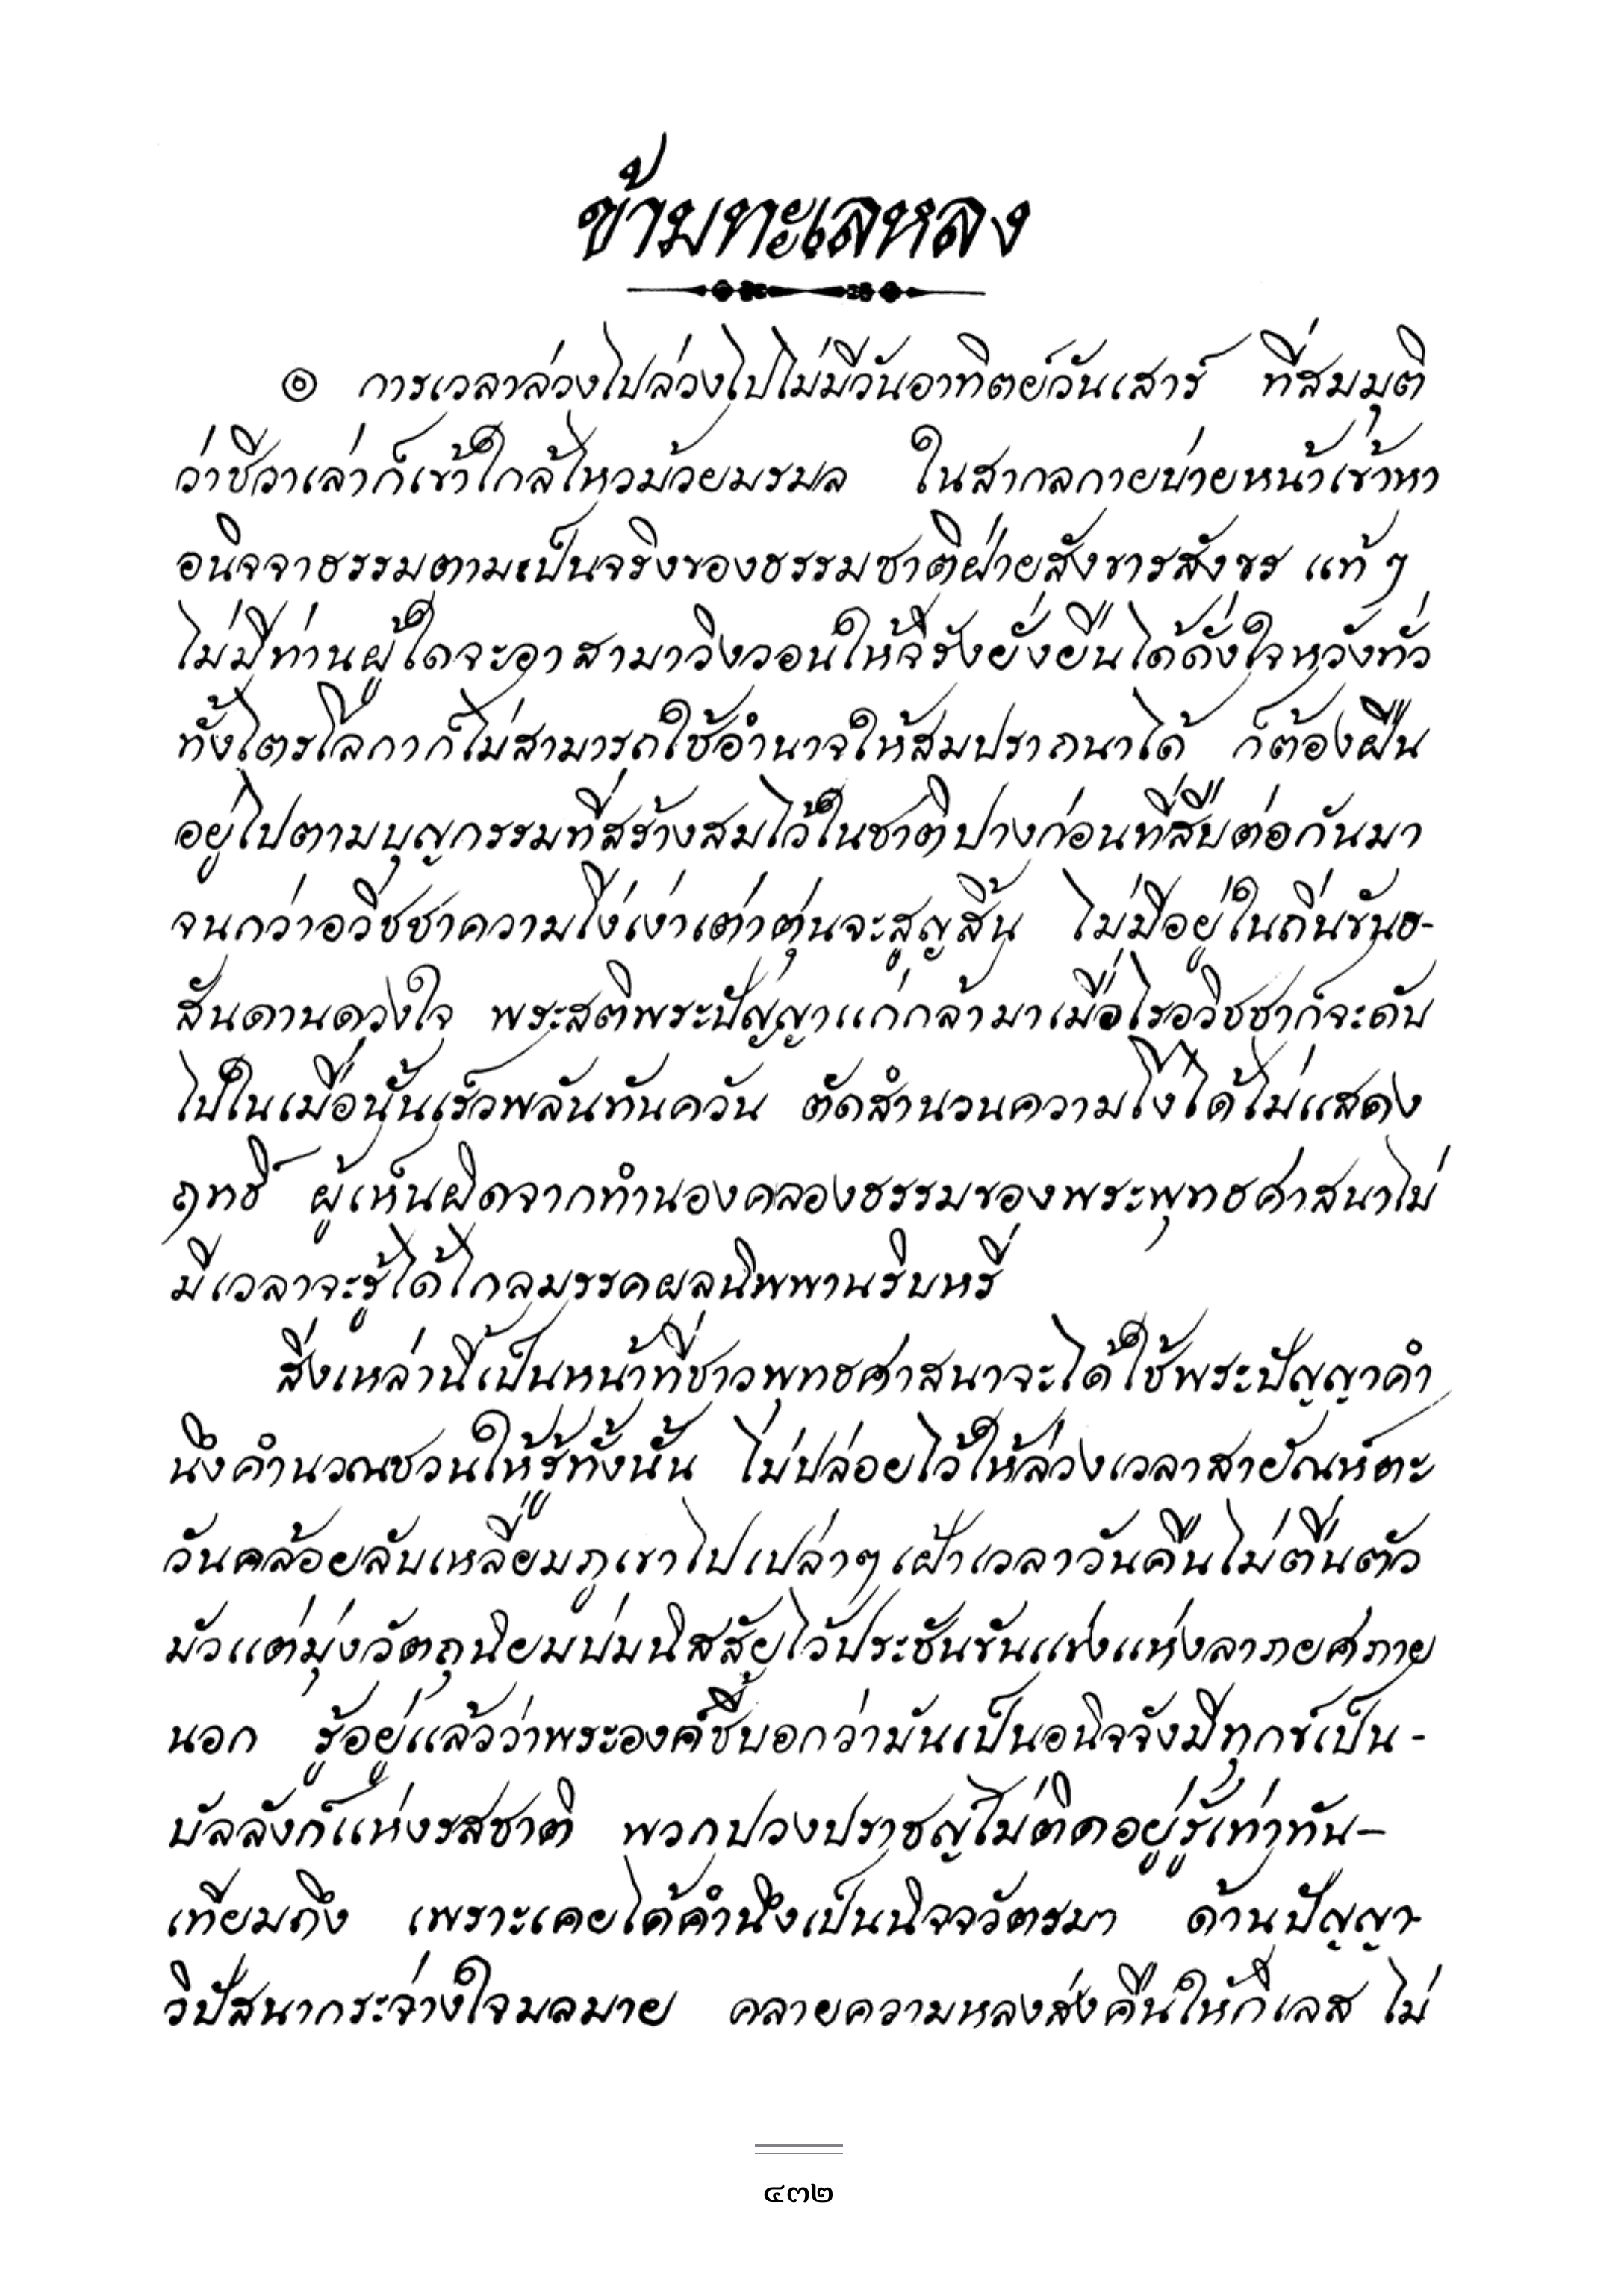 ข้ามทะเลหลง
๏ การเวลาล่วงไปล่วงไปไม่มีวันอาทิตย์วันเสาร์ ที่สมมุติ
ว่าชีวาเล่าก็เข้าใกล้ไหวม้วยมรมล ในสากลกายบ่ายหน้าเข้าหา
อนิจจาธรรมตามเป็นจริงของธรรมชาติฝ่ายสังขารสังขร แท้ ๆ
ไม่มีท่านผู้ใดจะอาสามาวิงวอนให้จีรังยั่งยืนได้ดั่งใจหวังทั่ว
ทั้งไตรโลกาก็ไม่สามารถใช้อำนาจให้สมปรารถนาได้ ก็ต้องฝืน
อยู่ไปตามบุญกรรมที่สร้างสมไว้ในชาติปางก่อนที่สืบต่อกันมา
จนกว่าอวิชชาความโง่เง่าเต่าตุ่นจะสูญสิ้น ไม่มีอยู่ในถิ่นขันธ-
สันดานดวงใจ พระสติพระปัญญาแก่กล้ามาเมื่อไรอวิชชาก็จะดับ
ไปในเมื่อนั้นเร็วพลันทันควัน ตัดสำนวนความโง่ได้ไม่แสดง
ฤทธิ์ ผู้เห็นผิดจากทำนองคลองธรรมของพระพุทธศาสนาไม่
มีเวลาจะรู้ได้ไกลมรรคผลนิพพานริบหรี่
สิ่งเหล่านี้เป็นหน้าที่ชาวพุทธศาสนาจะได้ใช้พระปัญญาคำ
นึงคำนวณชวนให้รู้ทั้งนั้น ไม่ปล่อยไว้ให้ล่วงเวลาสายัณห์ตะ
วันคล้อยลับเหลี่ยมภูเขาไปเปล่าๆ เฝ้าเวลาวันคืนไม่ตื่นตัว
มัวแต่มุ่งวัตถุนิยมบ่มนิสสัยไว้ประชันขันแข่งแห่งลาภยศภาย
นอก รู้อยู่แล้วว่าพระองค์ชี้บอกว่ามันเป็นอนิจจังมีทุกข์เป็น -
บัลลังก์แห่งรสชาติ พวกปวงปราชญ์ไม่ติดอยู่รู้เท่าทัน-
เทียมถึง เพราะเคยได้คำนึงเป็นนิจจวัตรมา ด้านปัญญา
วิปัสนากระจ่างใจมลมาย คลายความหลงส่งคืนให้กิเลส ไม่
๔๓๒